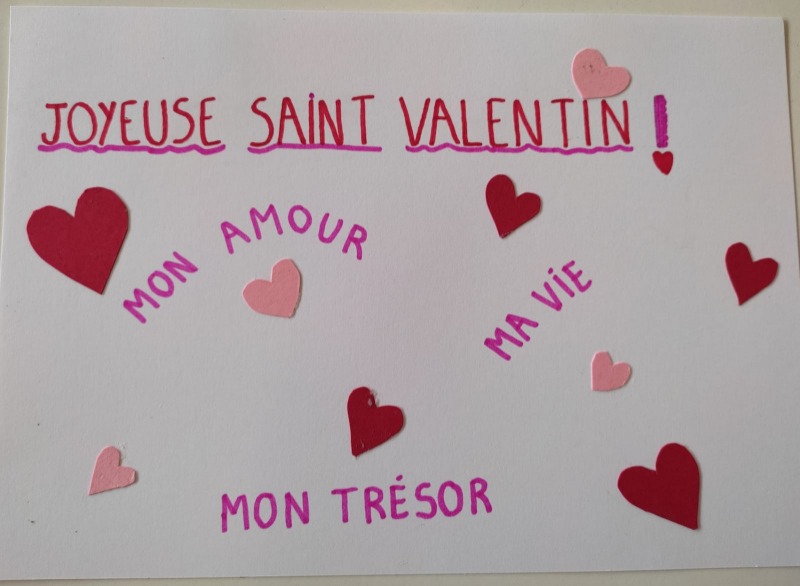 JOYEUSE SAINT VALENTIN !
MON AMOUR
MA VIE
MON TRÉSOR